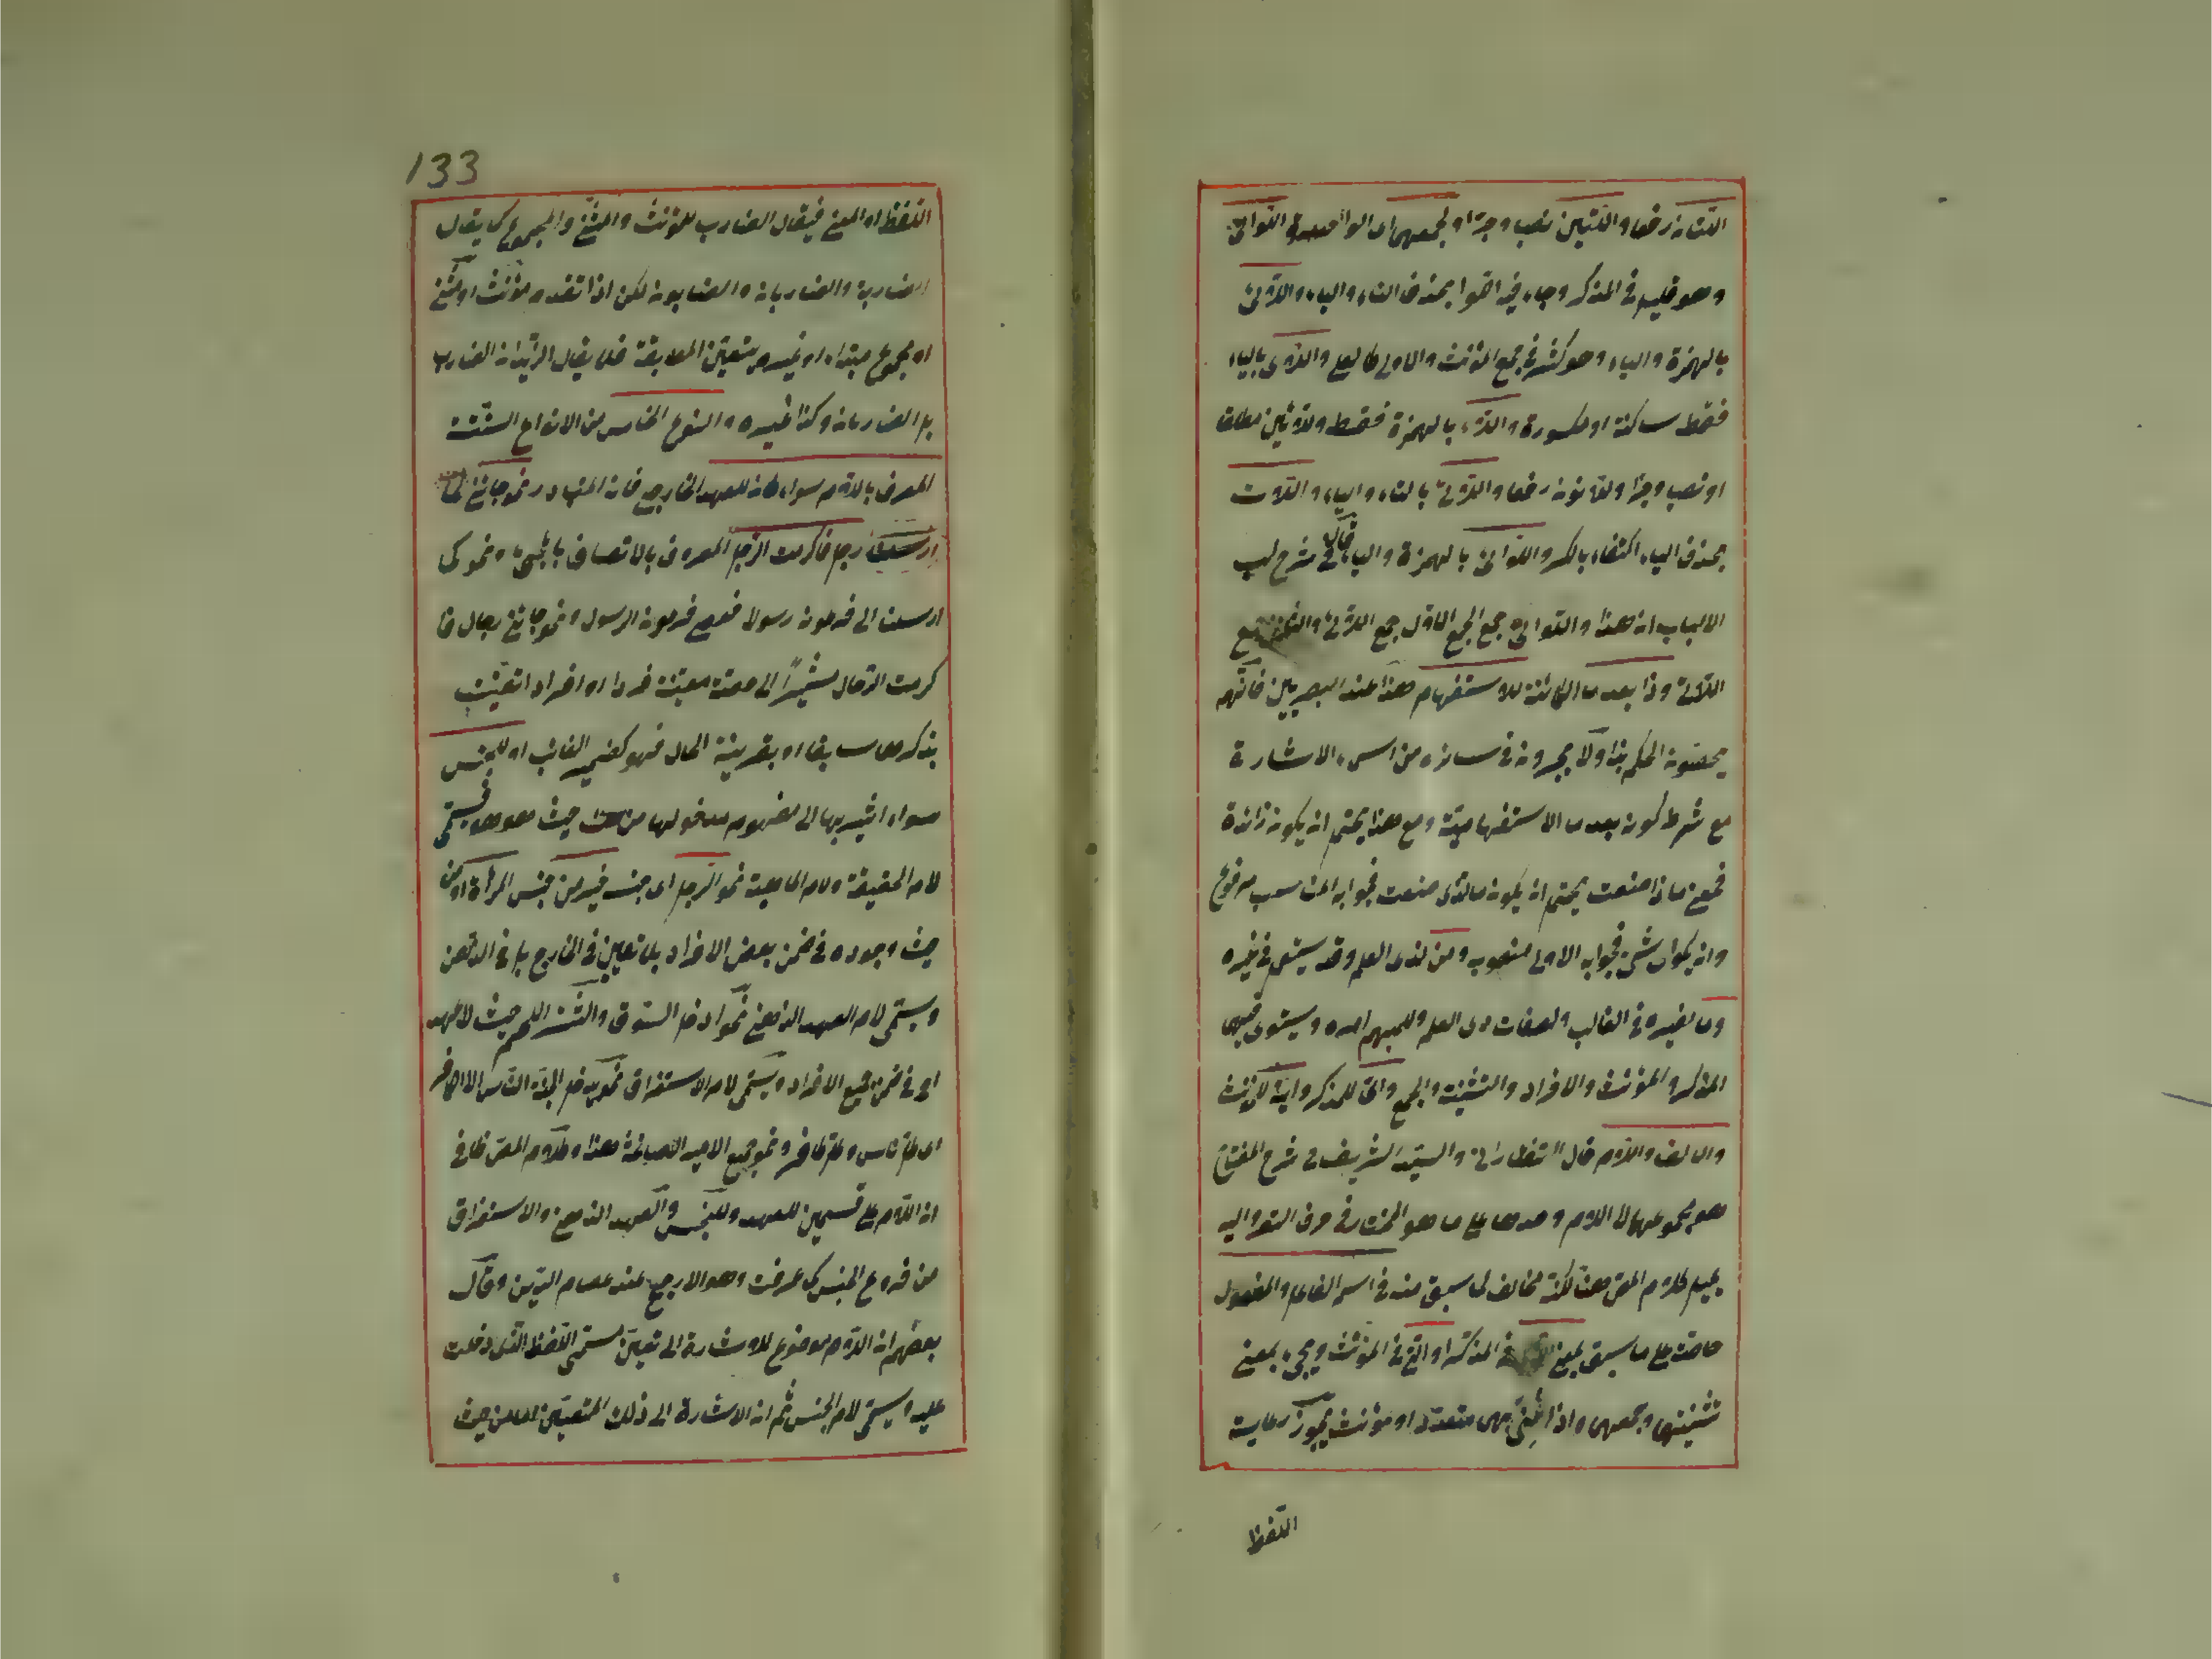 اللتان رفعا واللتين نصبا وجرا ولجمعهما اى الواحدة اللواتى
وهو قليل فى المذكر وجاء فيه اللوا بحذف التاء والياء واللائى
بالهمزة والياء وهو كثير فى جمع المؤنث والاولى كالعلى واللاى بالياء
فقط ساكنة او مكسورة واللاء بالهمزة فقط ولائين مطلقا
او نصبا وجرا ولاؤن رفعا واللاتى بالتاء والياء واللات
بحذف الياء اكتفاء بالكسر واللوائى بالهمزة والياء قال فى شرح لب
الالباب ان هذا واللواتى جمع الجمع الاول جمع اللائى والثانى جمع
اللاتى وذا بعد ما الكائنة للاستفهام هذا عند البصريين فانهم
يخصون الحكم بذا ولا يجرونه فى سائر من اسماء الاشارة
مع شرط كونه بعد ما الاستفهامية ومع هذا يحتمل ان يكون زائدة
فمعنى ماذا صنعت يحتمل ان يكون ما الذى صنعت فجوابه المناسب مرفوع
وان يكون اى شئ فجوابه الاولى منصوب ومن لذى العلم وقد يستعمل فى غيره
وما لغيره فى الغالب ولصفات ذى العلم وللمبهم امره ويستوى فيهما
المذكر والمؤنث والافراد والتثنية والجمع واى للمذكر واية للمؤنث
والالف واللام قال التفتازانى والسيد الشريف فى شرح المفتاح
هو مجموعهما لا اللام وحدها على ما هو المختار فى حرف التعريف واليه
يميل كلام المص هنا لكنه مخالف لما سبق منه فى اسم الفاعل والمفعول
على ما سبق بمعنى الذى فى المذكر او التى فى المؤنث ويجئ بمعنى
تثنيتهما وجمعهما واذا عنى بهما متعدد او مؤنث يجوز رعاية
اللفظ
133
اللفظ او المعنى فيقال الضارب للمؤنث والمثنى والمجموع كما يقال
الضاربة والضاربان والضاربون لكن اذا تقدم مؤنث او مثنى
او مجموع مبتداء او غيره يتعين المطابقة فلا يقال الزيدان الضارب
بل الضاربان وكذا غيره والنوع الخامس من الانواع الستة
المعرف باللام سواء كان للعهد الخارجى فانه المتبادر نحو جائنى
رجل فاكرمت الرجل المعروف بالاتصاف بالمجئ ونحو كما
ارسلنا الى فرعون رسولا فعصى فرعون الرسول ونحو جائنى رجال فا
كرمت الرجال مشيرا الى حصة معينة فردا او افرادا تعينت
بذكرها سابقا او بقرينة الحال فهو كضمير الغائب او للجنس
سواء اشير بها الى مفهوم مدخولها من حيث هو هو فيسمى
لام الحقيقة ولام الماهية نحو الرجل اى جنسه خير من جنس المرأة او من
حيث وجوده فى ضمن بعض الافراد بلا تعيين فى الخارج بل فى الذهن
ويسمى لام العهد الذهنى نحو ادخل السوق واشتر اللحم حيث لا عهد
او فى ضمن جميع الافراد ويسمى لام الاستغراق نحو يدخل الجنة الناس الا الكافر
اى كل ناس وكل كافر ونحو جمع الامير الصاغة هذا وكلام المص ظ فى
ان اللام على قسمين للعهد وللجنس والعهد الذهنى والاستغراق
من فروع الجنس كما عرفت وهو الارجح عند عصام الدين وقال
بعضهم ان اللام موضوع للاشارة الى تعين مسمى اللفظ الذى دخلت
عليه ويسمى لام الجنس ثم ان الاشارة الى ذلك المتعين اما من حيث